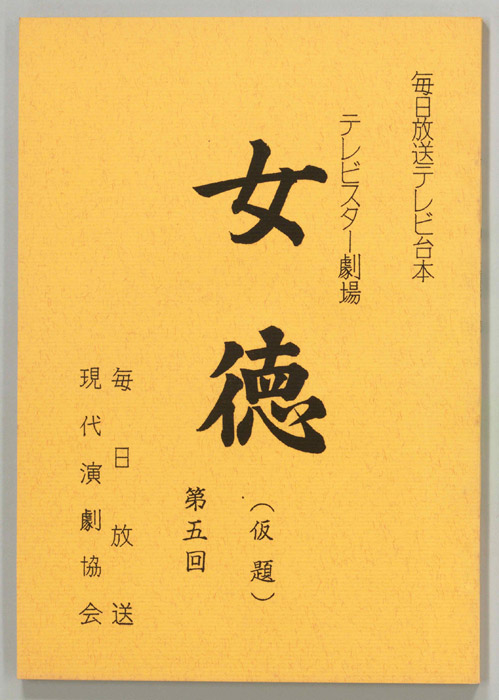 毎日放送テレビ台本
テレビスター劇場
女徳
（仮題）
第五回
毎日放送
現代演劇協会